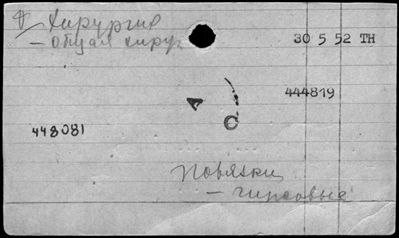 Хирургия
– общая хирур
30 5 52 TH
444819
A
C
448081
Повязки
– гипсовые